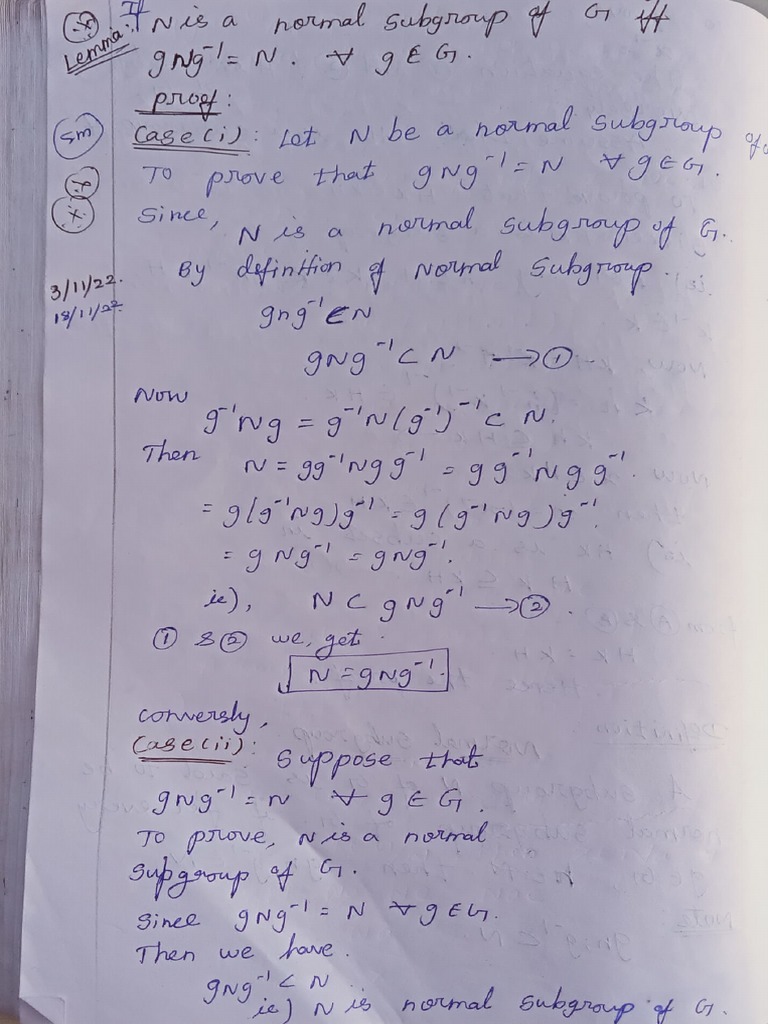 If N is a normal subgroup of G iff
Lemma: gNg⁻¹ = N. ∀ g ∈ G.
proof:
5m Case(i): Let N be a normal subgroup of
To prove that gNg⁻¹ = N ∀ g ∈ G.
Since, N is a normal subgroup of G.
By definition of Normal Subgroup.
3/11/22.
18/11/22.
gng⁻¹ ∈ N
gNg⁻¹ ⊂ N → ①
Now
g⁻¹Ng = g⁻¹N(g⁻¹)⁻¹ ⊂ N.
Then N = gg⁻¹Ngg⁻¹ = gg⁻¹Ngg⁻¹.
= g(g⁻¹Ng)g⁻¹ = g(g⁻¹Ng)g⁻¹.
= gNg⁻¹ = gNg⁻¹.
ie), N ⊂ gNg⁻¹ → ②.
① & ② we, get.
N = gNg⁻¹.
conversly,
Case(ii): Suppose that
gNg⁻¹ = N ∀ g ∈ G.
To prove, N is a normal
Supgroup of G.
Since gNg⁻¹ = N ∀ g ∈ G.
Then we have.
gNg⁻¹ ⊂ N
ie) N is normal subgroup of G.